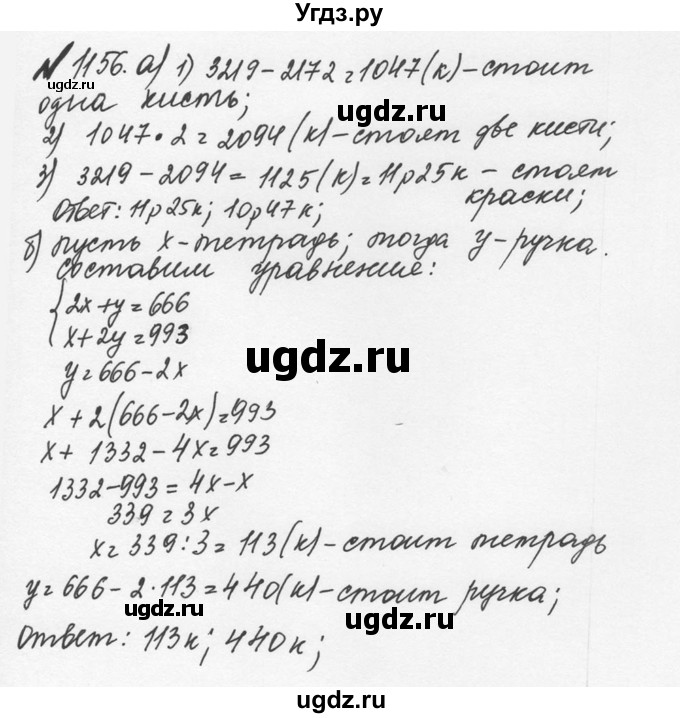 Угдз.ру
№ 1156. а) 1) 3219 - 2172 = 1047 (к) - стоит
ugdz.ru
одна кисть;
ugdz.ru
2) 1047 · 2 = 2094 (к) - стоят две кисти;
ugdz.ru
3) 3219 - 2094 = 1125 (к) = 11р 25к - стоят
краски;
ugdz.ru
Ответ: 11р 25к; 10р 47к;
б) пусть x - тетрадь; тогда y - ручка.
ugdz.ru
Составим уравнения:
{ 2x + y = 666
x + 2y = 993
ugdz.ru
y = 666 - 2x
x + 2(666 - 2x) = 993
x + 1332 - 4x = 993
1332 - 993 = 4x - x
339 = 3x
x = 339 : 3 = 113 (к) - стоит тетрадь
y = 666 - 2 · 113 = 440 (к) - стоит ручка;
ugdz.ru
ugdz.ru
ugdz.ru
Ответ: 113к; 440к;
ugdz.ru